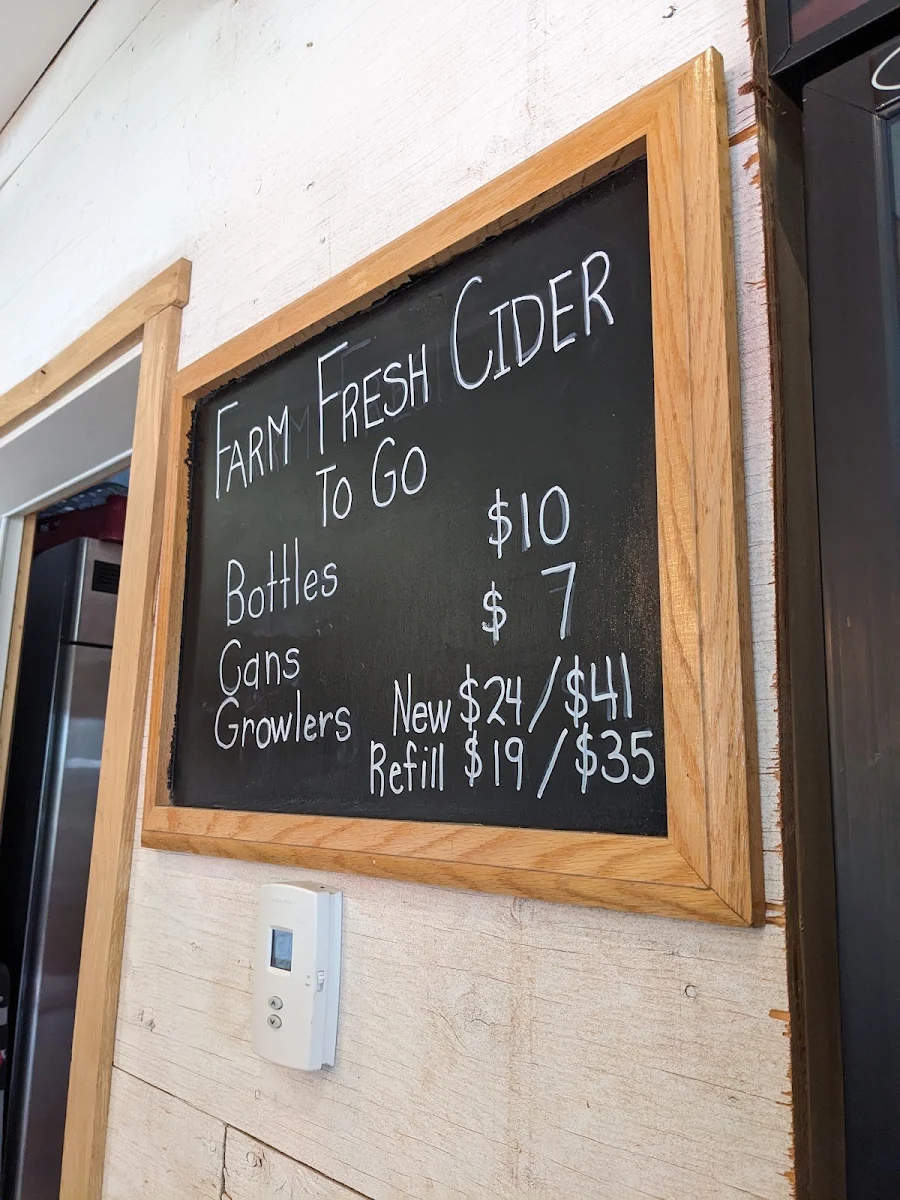 FARM FRESH CIDER
TO GO
Bottles $10
Cans $ 7
Growlers New $24/$41
Refill $19/$35